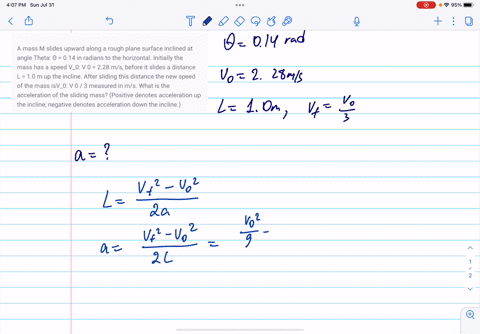 4:07 PM Sun Jul 31
95%
A mass M slides upward along a rough plane surface inclined at
angle Theta: Θ = 0.14 in radians to the horizontal. Initially the
mass has a speed V_0: V 0 = 2.28 m/s, before it slides a distance
L = 1.0 m up the incline. After sliding this distance the new speed
of the mass isV_0: V 0 / 3 measured in m/s. What is the
acceleration of the sliding mass? (Positive denotes acceleration up
the incline; negative denotes acceleration down the incline.)
θ = 0.14 rad
V₀ = 2.28 m/s
L = 1.0m, V_f = V₀/3
a = ?
L = (V_f² - V₀²)/2a
a = (V_f² - V₀²)/2L = V₀²/9 -
1
/
2